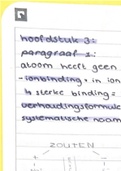 hoofdstuk 3:
paragraaf 1:
atoom heeft geen
- ionbinding = in ion
↳ sterke binding =
verhoudingsformule
systematische naam
ZOUTEN